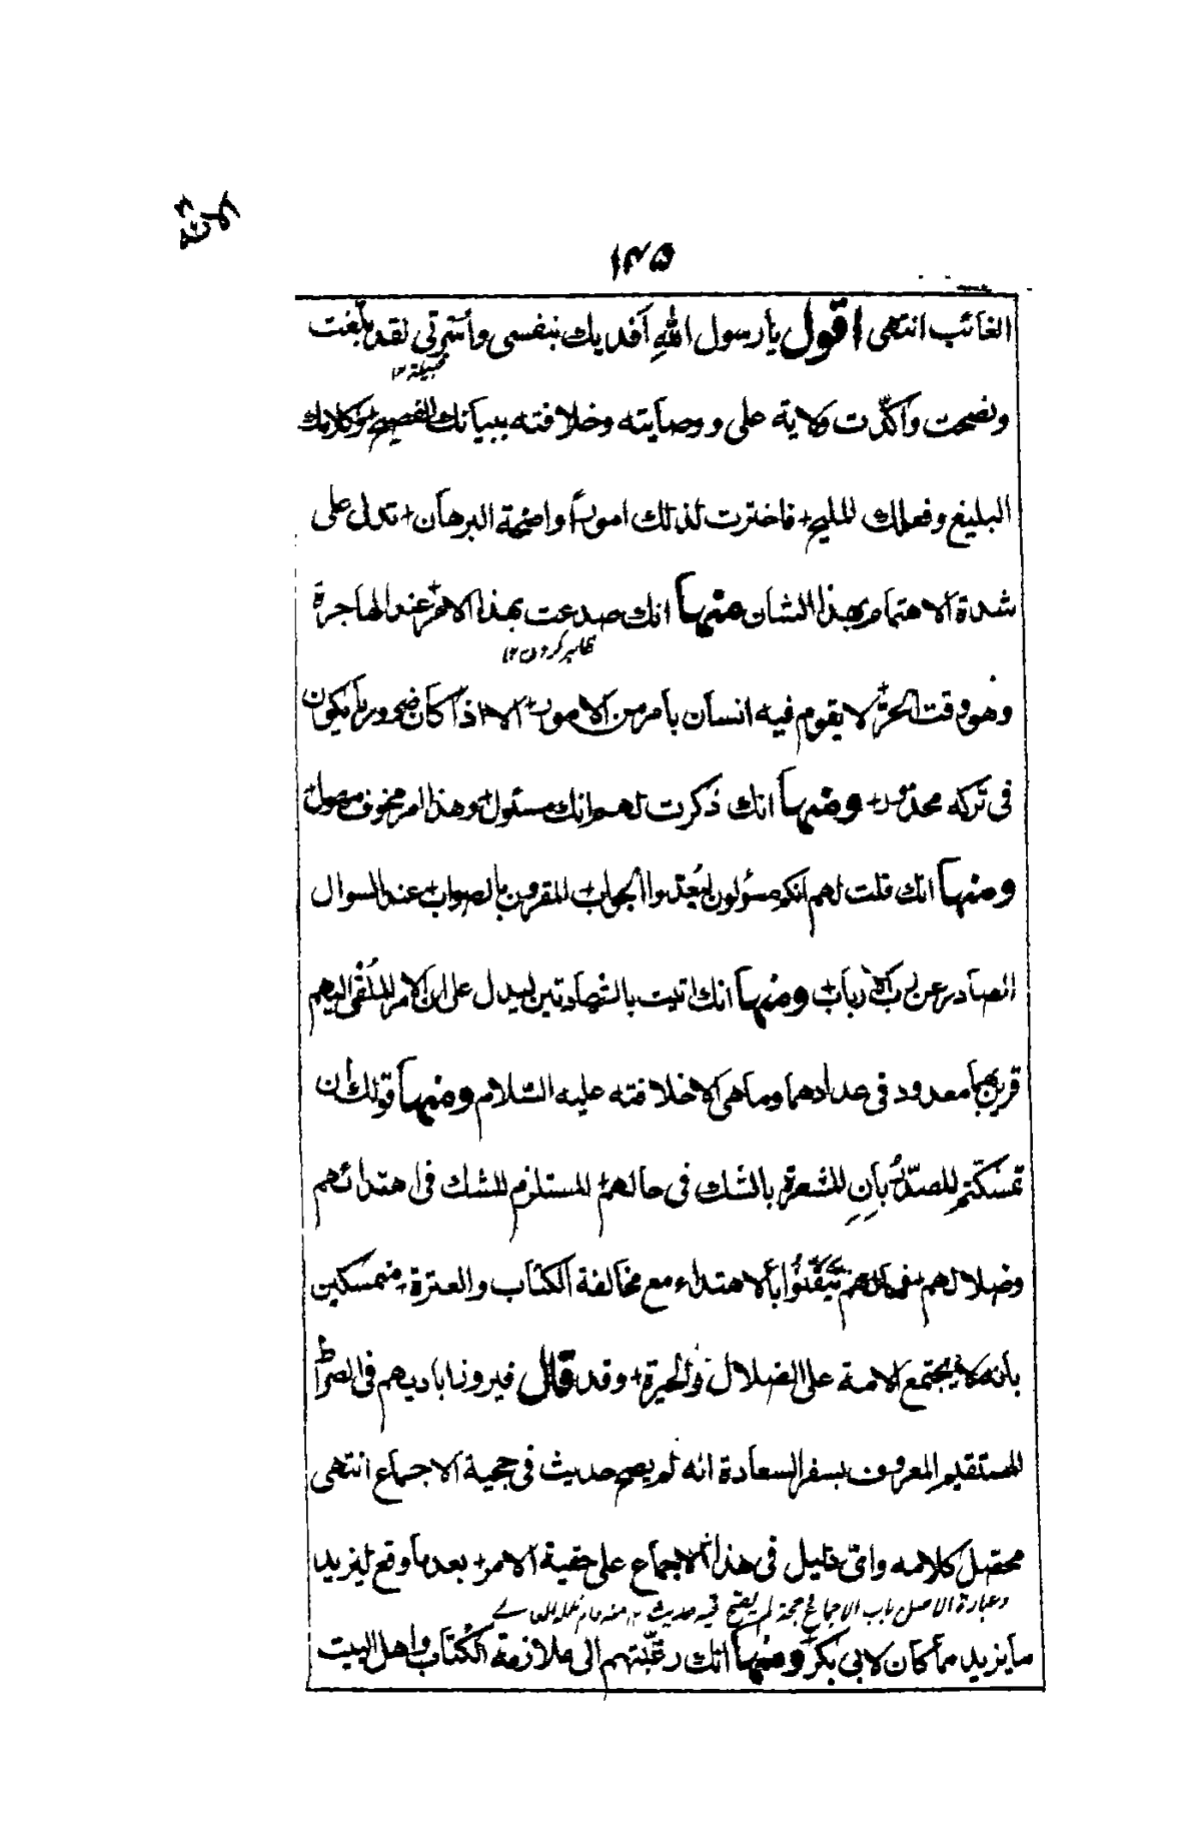 ١٣۵
الغائب انتهى اقول يا رسول اللهِ اَفديك بنفسى واُسْرتى لقد بلّغت
قبيلة ١٢
ونصحت واكّدت ولاية على ووصايته وخلافته ببيانك الفصيح + وكلامك
البليغ وفعلك المليح + فاخترت لذلك اموراً واضحة البرهان + تدل على
شدة الاهتمام بهذا الشان منها انك صدعت بهذا الامر + عند الهاجرة
ظاہر کردن ١٢
وهو وقت الحرّ + لا يقوم فيه انسان بامر من الامور + الا اذا كان ضروريا يكون
فى تركه محذور + ومنها انك ذكرت لهم انك مسئول + وهذا امر مخوف مهول +
ومنها انك قلت لهم انكم مسؤلون ليُعِدّوا الجواب + المقرون بالصواب + عند السوال
الصادر عن رب الارباب + ومنها انك اتيت بالشهادتين ليدل على ان الامر المُلقٰى اليهم
قرين بهما معدود فى عدادهما وما هى الا خلافته عليه السّلام ومنها قولك ان
تمسّكتم المصدّرُ بأِنِ المشعرة بالشك فى حالهم + المستلزم للشك فى اهتدائهم
وضلالهم + تَيَقَّنُوا بالاهتداء مع مخالفة الكتاب والعترة + متمسكين
بانه لا يجتمع الامة على الضلال والحيرة + وقد قال فيروزابادیهم فى الصراط
المستقيم المعروف بسفر السعادة انه لم يصح حديث فى حجية الاجماع انتهى
محصل كلامه واىّ دليل فى هذا الاجماع على حقية الامر + بعد ما وقع ليزيد
وعبارة الاصل باب الاجماع حجة لم يصح فيه حديث ١٢ منه دام ظله العالی
ما يزيد مما كان لابى بكر ومنها انك رغّبتهم الى ملازمة الكتاب واهل البيت